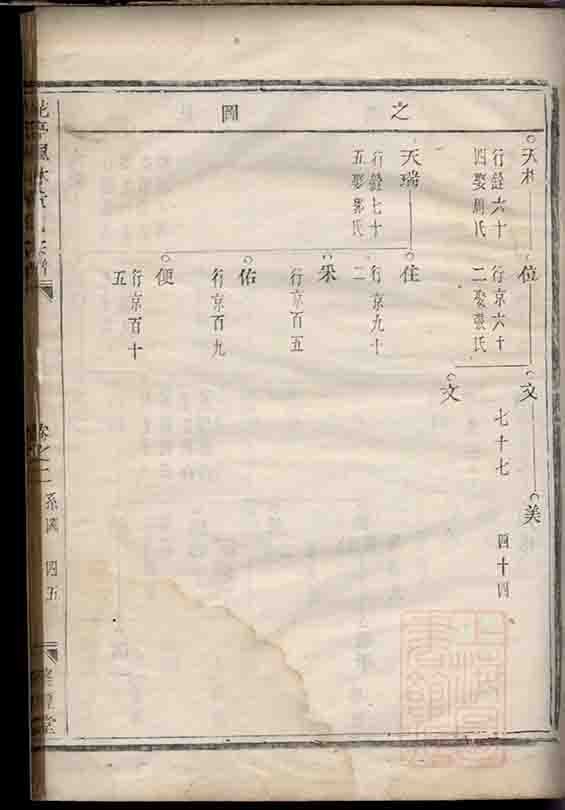 之圖
天木
行詮六十
四娶周氏
位
行京六十
二娶張氏
文
七十七
美
四十四
文
天瑞
行詮七十
五娶郭氏
住
行京九十
二
采
行京百五
佑
行京百九
便
行京百十
五
卷之二
系圖
四五